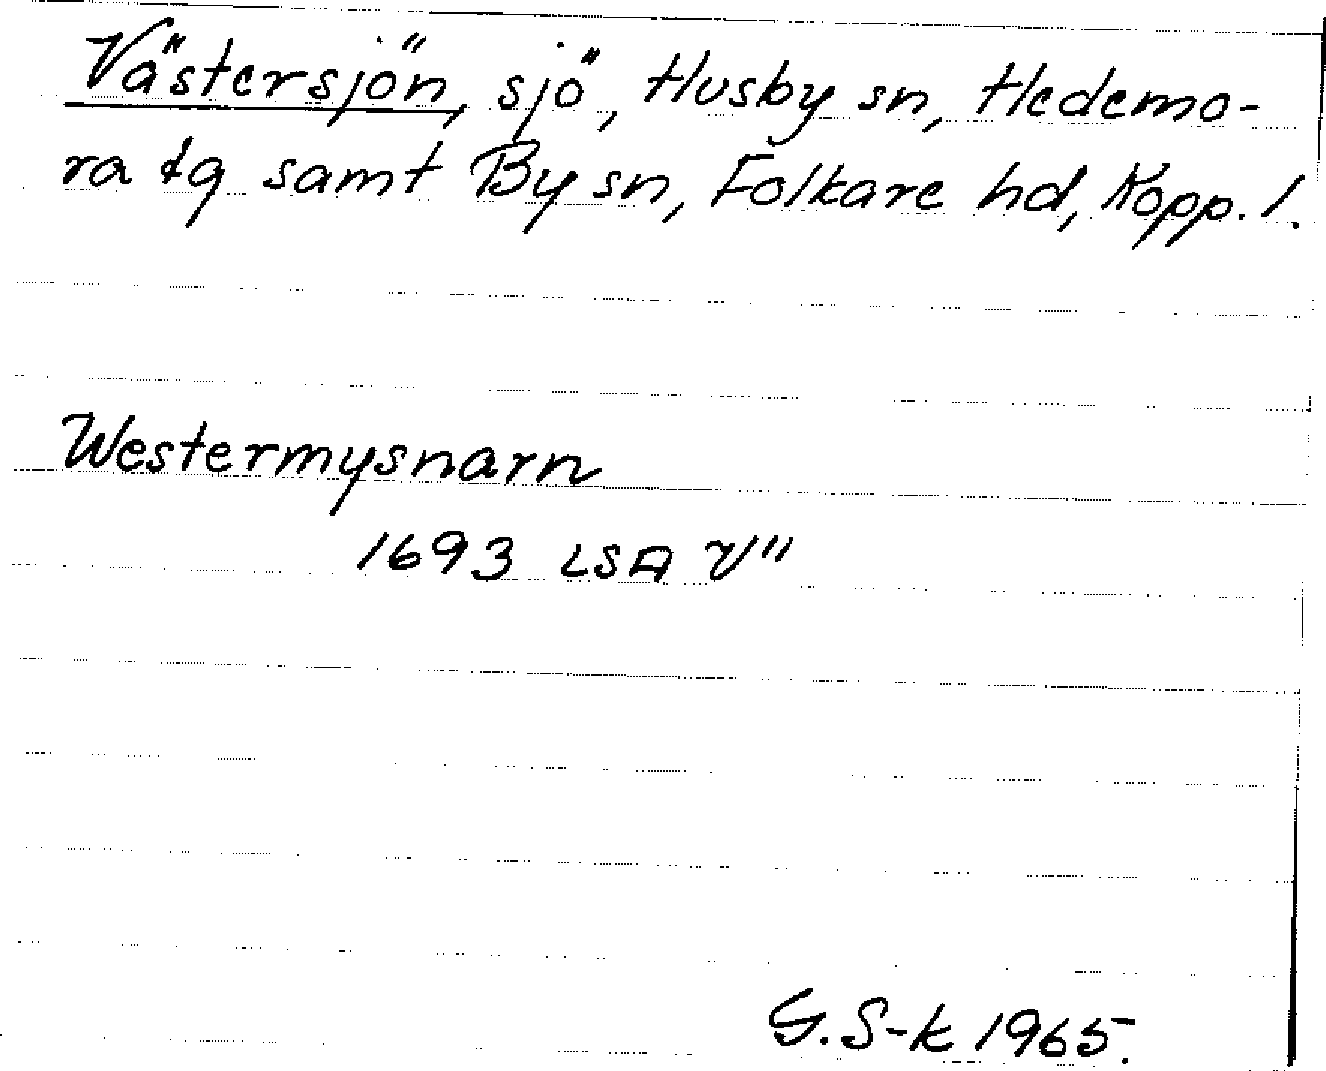 Västersjön, sjö, Husby sn, Hedemo-
ra tg samt By sn, Folkare hd, Kopp. l.
Westermysnarn
1693 LSA V"
G. S-k 1965.